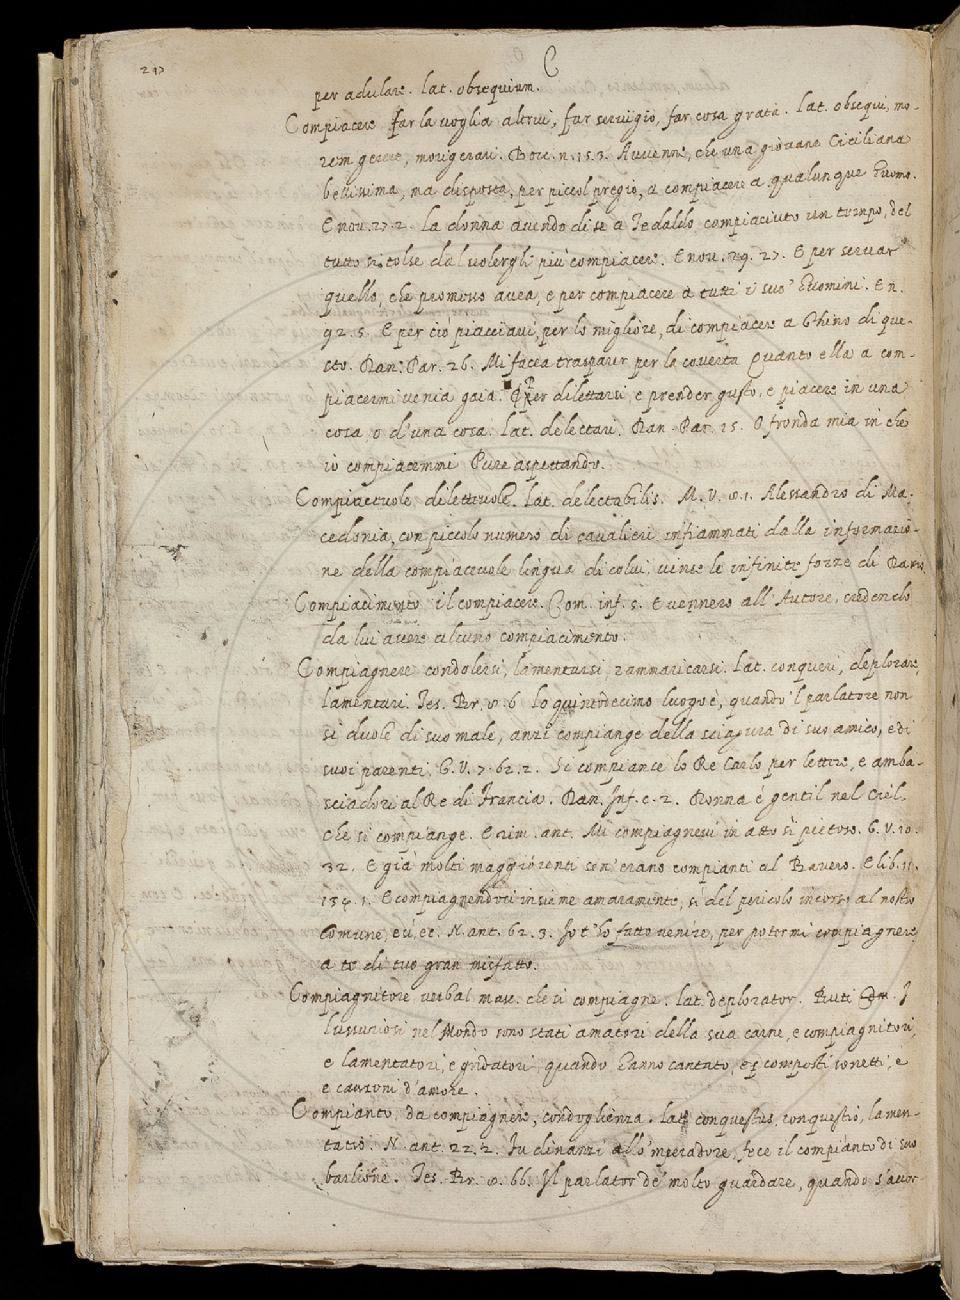 C
per adulare. lat. obsequium.
Compiacere far la voglia altrui, far servigio, far cosa grata. lat. obsequi, mo-
rem gerere, morigerari. Bocc. n. 15. 3. Avvenne, che una giovane Ciciliana
bellissima, ma disposta, per piccol pregio, a compiacere a qualunque huomo.
E nov. 27. 2. la donna avendo di se a Tedaldo compiaciuto un tempo, del
tutto si tolse dal volergli più compiacere. E nov. 29. 27. E per servar
quello, che promesso avea, e per compiacere a tutti i suo' huomini. E n.
92. 5. E per ciò piacciavi, per lo migliore, di compiacere a Ghino di que-
sto. Dan. Par. 26. Mi facea trasparer per la coverta Quanto ella a com-
piacermi venia gaia. per dilettarsi, e prender gusto, e piacere in una
cosa, o d'una cosa. lat. delectari. Dan. Par. 15. O fronda mia in che
io compiacemmi Pure aspettando.
Compiacevole dilettevole. lat. delectabilis. M. V. 8. 1. Alessandro di Ma-
cedonia, con piccolo numero di cavalieri infiammati dalla informazio-
ne della compiacevole lingua di colui, vinse le infinite forze di Dario
Compiacimento il compiacere. Com. inf. 5. E vennero all' Autore, credendo
da lui avere alcuno compiacimento.
Compiagnere condolersi, lamentarsi, rammaricarsi. lat. conqueri, deplorare,
lamentari. Tes. Br. 8. 6 lo quintodecimo luogo è, quando 'l parlatore non
si duole di suo male, anzi compiange della sciagura di suo amico, e di
suoi parenti. G. V. 7. 62. 2. Si compianse lo Re Carlo per lettere, e amba-
sciadori al Re di Francia. Dan. Inf. c. 2. Donna è gentil nel Ciel,
che si compiange. E rim. ant. Mi compiagnevi in atto sì pietoso. G. V. 10.
32. E già molti maggiorenti s'en' erano compianti al Bavero. E lib. 11.
134. 1. E compiagnendoci insieme amaramente, sì del pericolo incorso al nostro
Comune, ec. ec. N. ant. 62. 3. Io t' ho fatto venire, per potermi compiagnere
a te di tuo gran misfatto.
Compiagnitore verbal. masc. che si compiagne. lat. deplorator. Buti Com. I
lussuriosi nel Mondo sono stati amatori della sua carne, e compiagnitori,
e lamentatori, e gridatori, quando hanno cantato, e composti sonetti, e
e canzoni d'amore.
Compianto, da compiagnere, condoglienza. lat. conquestus, conquestio, lamen-
tatio. N. ant. 22. 2. Fu dinanzi allo 'mperadore, fece il compianto di suo
barlione. Tes. Br. 8. 66. Il parlator de' molto guardare, quando s'accor-